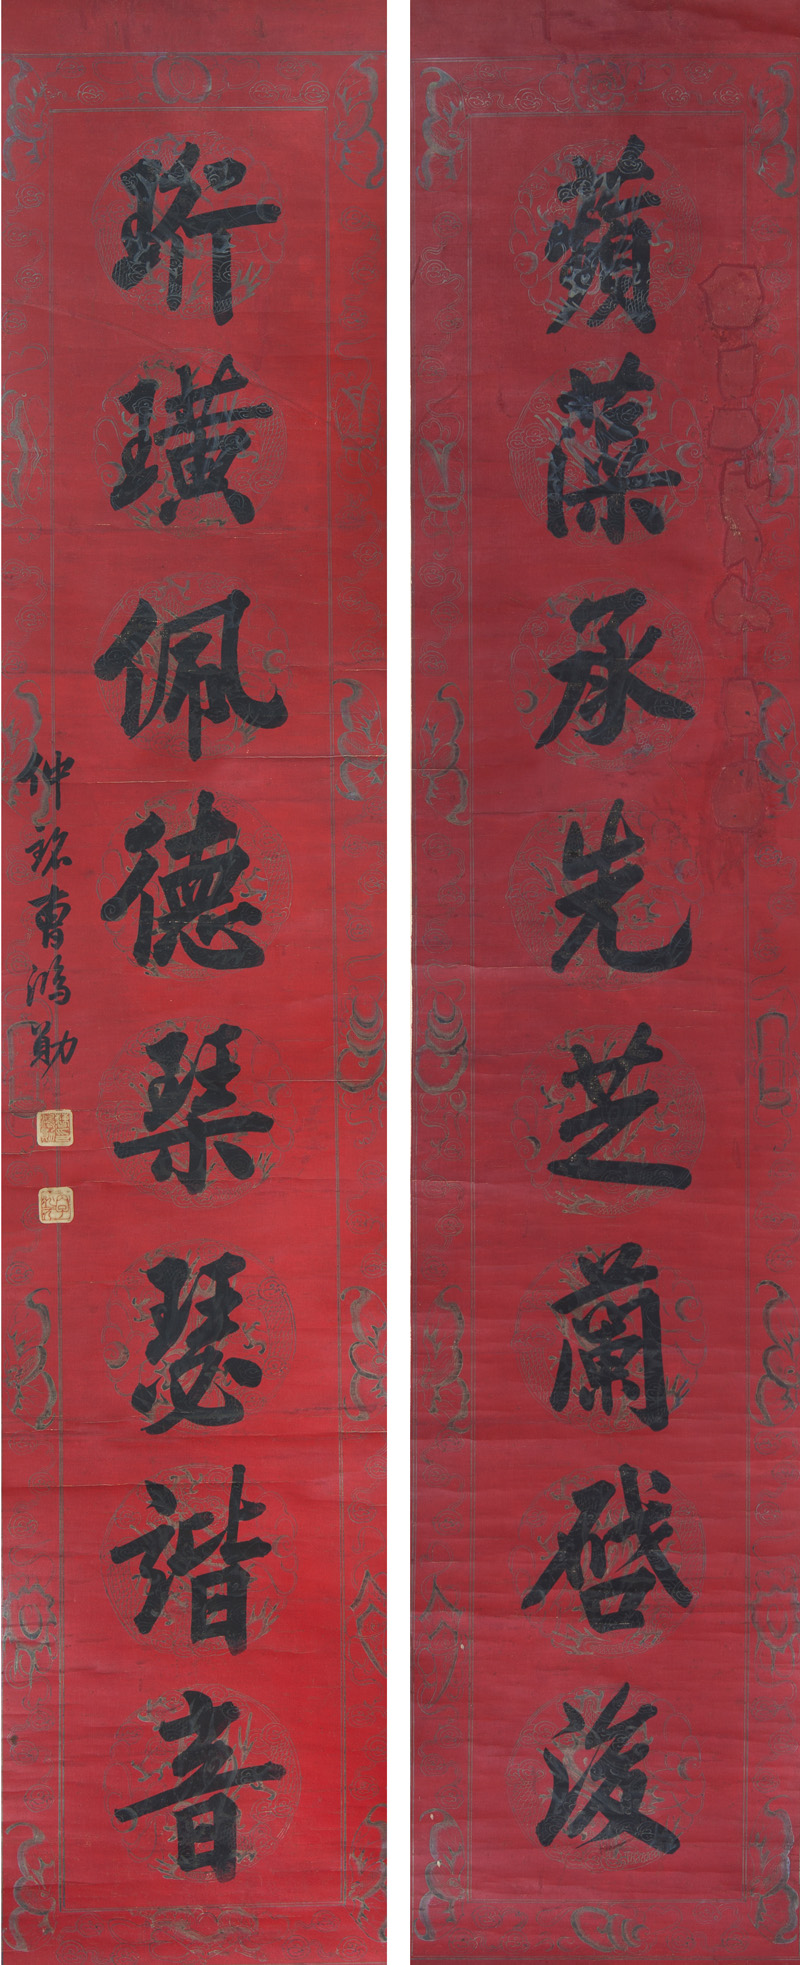 蘋藻承先芝蘭啓後
珩璜佩德琹瑟諧音
仲銘曹鴻勛